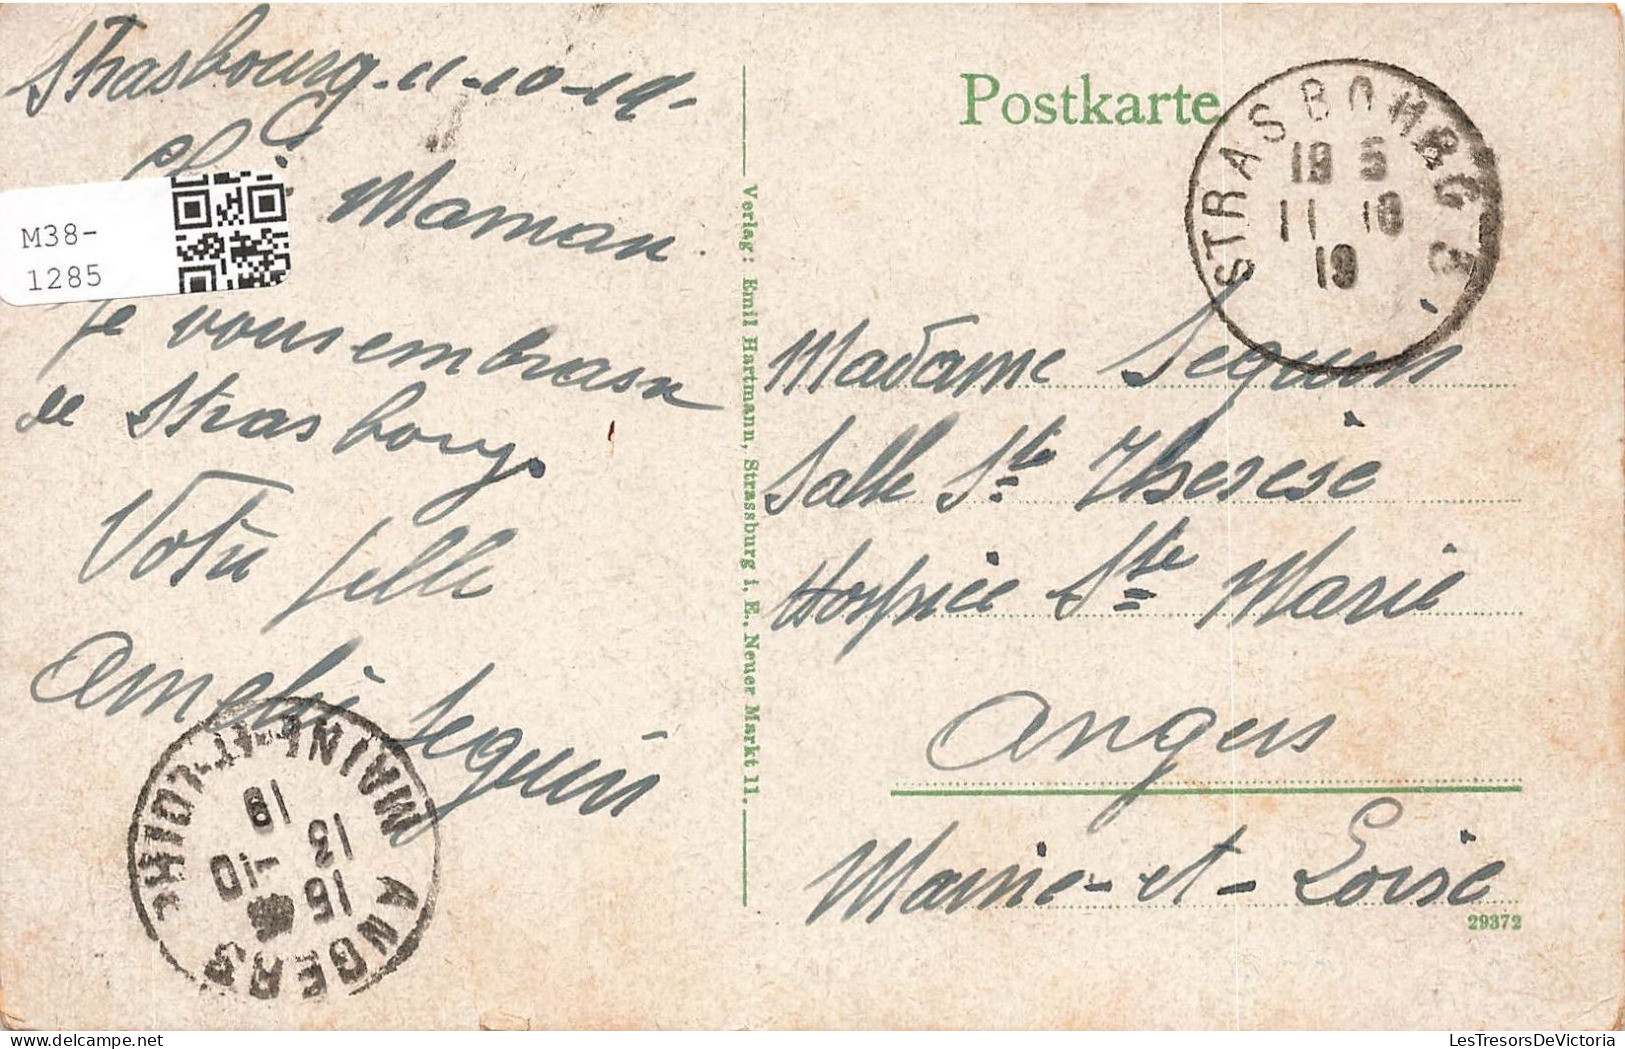 Strasbourg 11-10-19-
Chère Maman
Je vous embrasse
de Strasbourg.
Votre fille
Amélie Seguin
M38-
1285
Postkarte
Verlag: Emil Hartmann, Strassburg i. E., Neuer Markt 11.
STRASBOURG 3
19 5
11 10
19
Madame Seguin
Salle Ste Thérèse
Hospice Ste Marie
Angers
Maine-et-Loire
29372
ANGERS MAINE-ET-LOIRE
15
13
10
19
LesTresorsDeVictoria